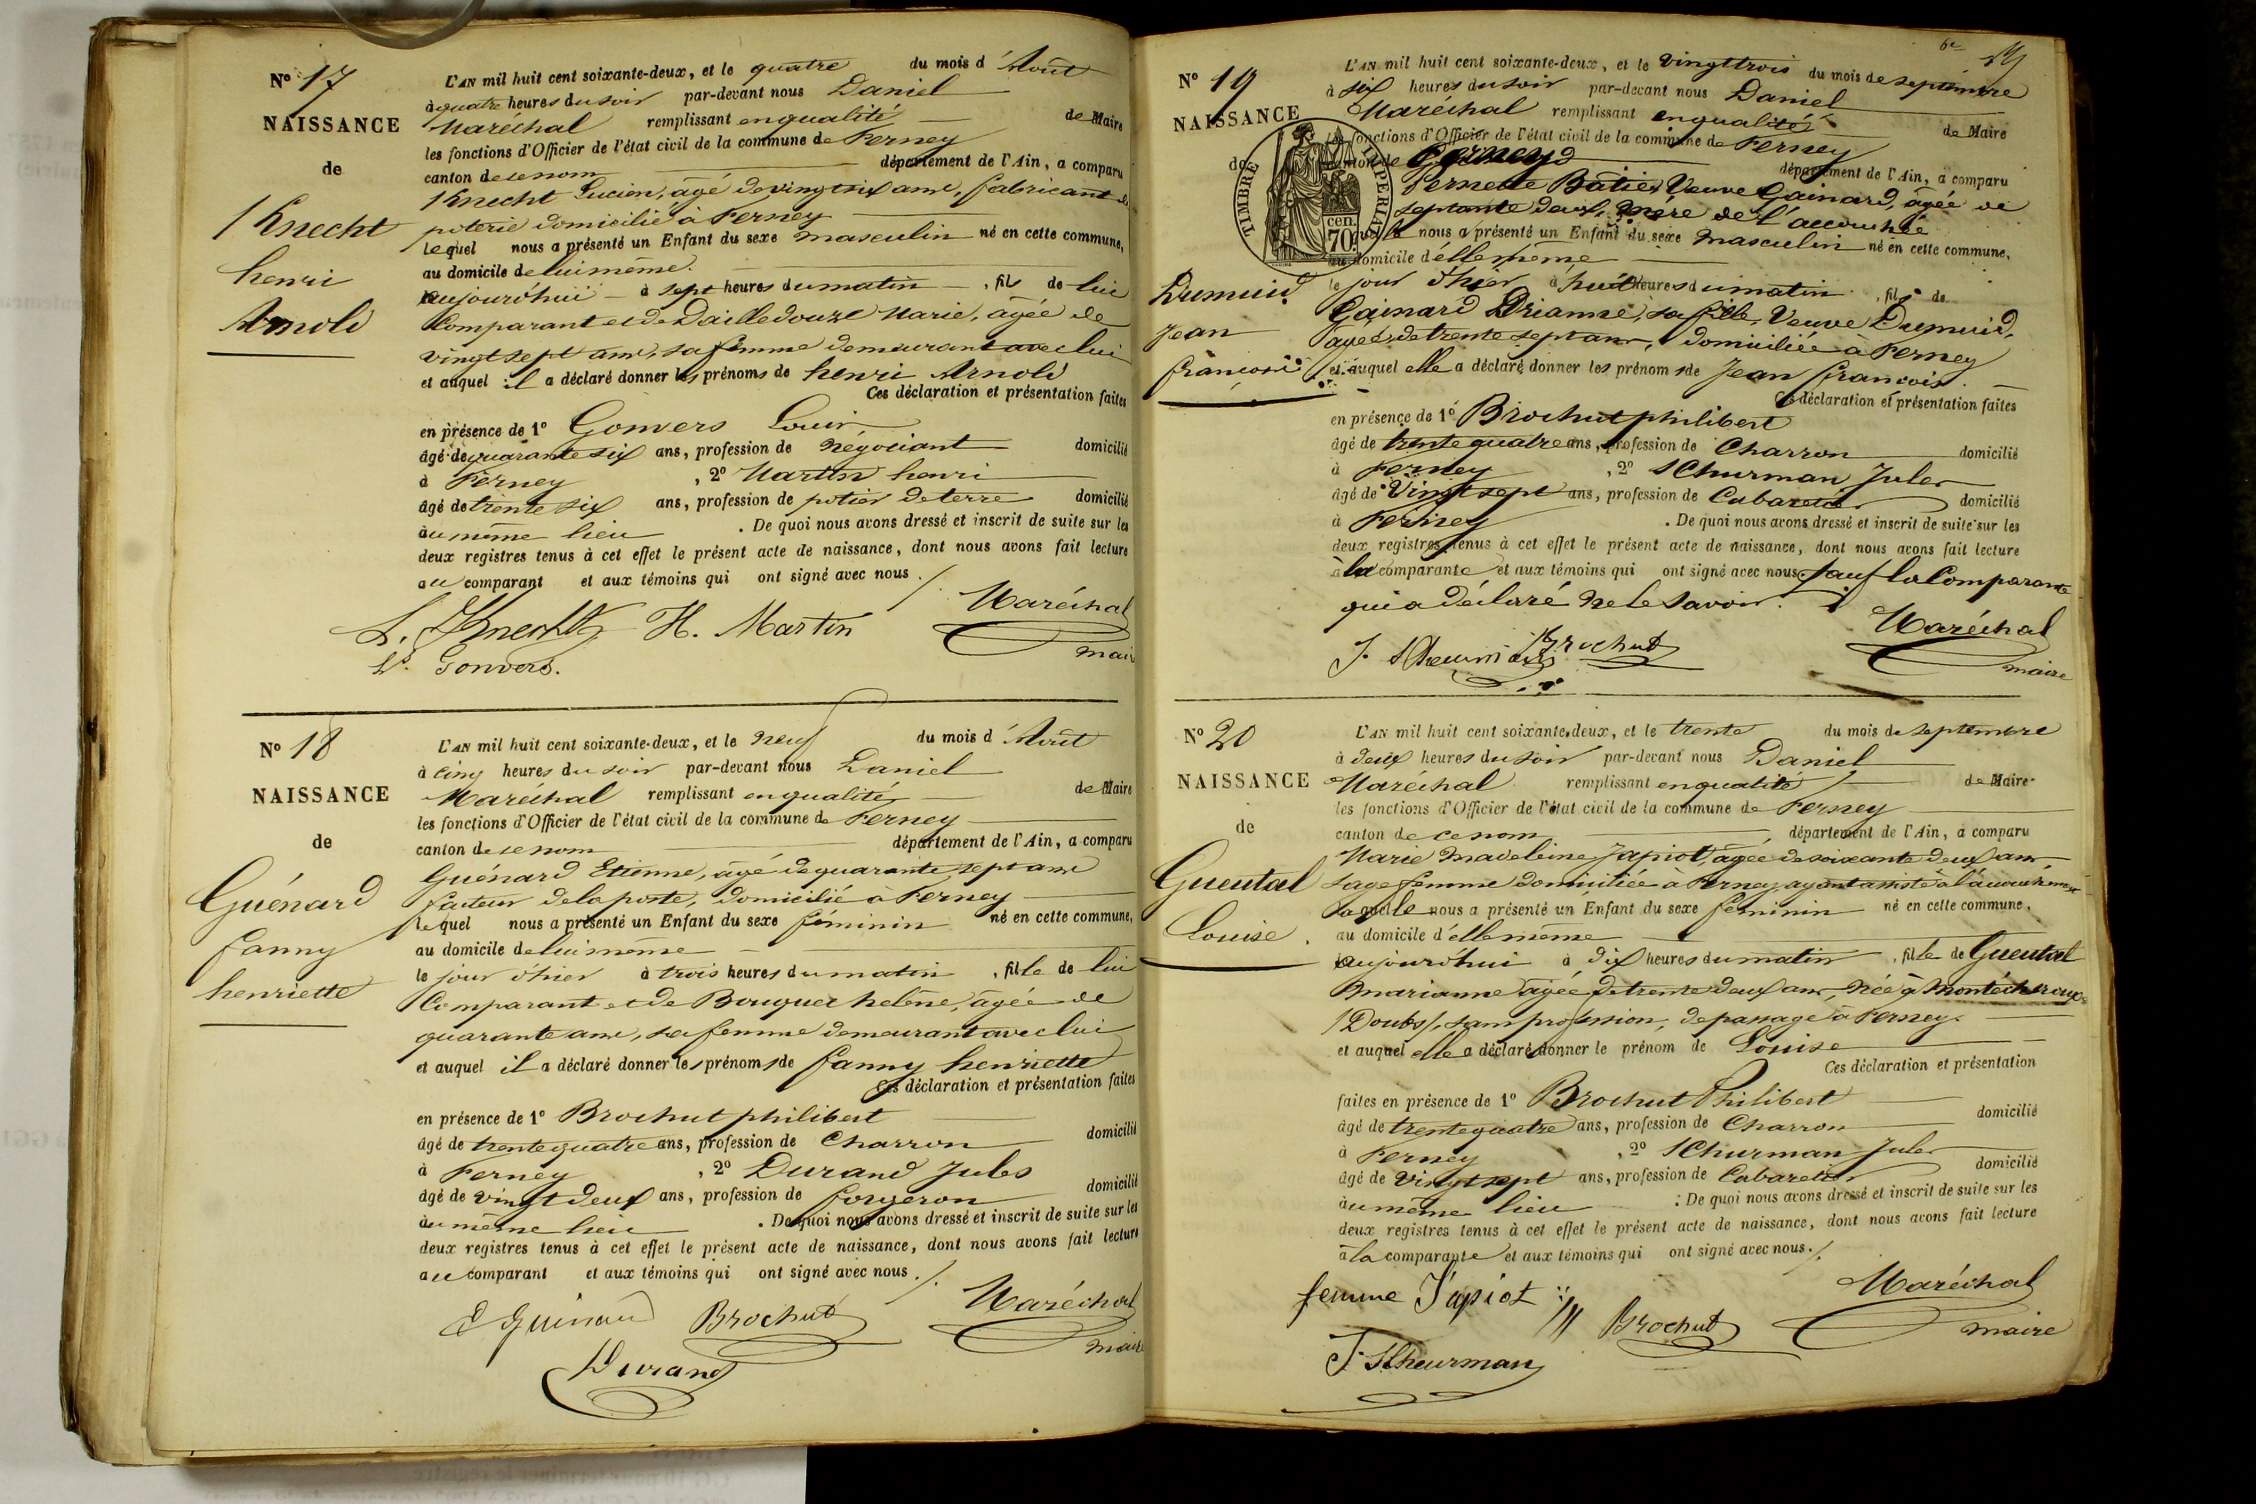 N° 17
NAISSANCE
de
Knecht
henri
Arnold
L'AN mil huit cent soixante-deux, et le quatre du mois d'Août
à quatre heures du soir par-devant nous Daniel
Maréchal remplissant en qualité de Maire
les fonctions d'Officier de l'état civil de la commune de Ferney
canton de ce nom département de l'Ain, a comparu
Knecht Lucien, âgé de vingt six ans, fabricant de
poterie domicilié à Ferney
lequel nous a présenté un Enfant du sexe masculin né en cette commune,
au domicile de lui même.
aujourd'hui à sept heures du matin, fils de lui
Comparant et de Dailledouze Marie, âgée de
vingt sept ans, sa femme demeurant avec lui
et auquel il a déclaré donner les prénoms de henri Arnold
Ces déclaration et présentation faites
en présence de 1° Gonvers Louis
âgé de quarante six ans, profession de négociant domicilié
à Ferney, 2° Martin henri
âgé de trente six ans, profession de potier de terre domicilié
au même lieu. De quoi nous avons dressé et inscrit de suite sur les
deux registres tenus à cet effet le présent acte de naissance, dont nous avons fait lecture
au comparant et aux témoins qui ont signé avec nous ./.
L. Knecht H. Martin Maréchal
Ls. Gonvers. maire
N° 18
NAISSANCE
de
Guénard
fanny
henriette
L'AN mil huit cent soixante-deux, et le neuf du mois d'Août
à cinq heures du soir par-devant nous Daniel
Maréchal remplissant en qualité de Maire
les fonctions d'Officier de l'état civil de la commune de Ferney
canton de ce nom département de l'Ain, a comparu
Guénard Etienne, âgé de quarante sept ans
facteur de la poste, domicilié à Ferney
lequel nous a présenté un Enfant du sexe féminin né en cette commune,
au domicile de lui même
le jour d'hier à trois heures du matin, fille de lui
Comparant et de Bouquet helène, âgée de
quarante ans, sa femme demeurant avec lui
et auquel il a déclaré donner les prénoms de fanny henriette
Ces déclaration et présentation faites
en présence de 1° Brochut philibert
âgé de trente quatre ans, profession de Charron domicilié
à Ferney, 2° Durand Jules
âgé de vingt deux ans, profession de forgeron domicilié
au même lieu. De quoi nous avons dressé et inscrit de suite sur les
deux registres tenus à cet effet le présent acte de naissance, dont nous avons fait lecture
au comparant et aux témoins qui ont signé avec nous ./.
E Guénard Brochut Maréchal
Durand maire
6e
N° 19
NAISSANCE
de
Dumuid
Jean
françois
L'AN mil huit cent soixante-deux, et le vingt trois du mois de septembre
à six heures du soir par-devant nous Daniel
Maréchal remplissant en qualité de Maire
les fonctions d'Officier de l'état civil de la commune de Ferney
canton de Ferney département de l'Ain, a comparu
Pernette Batier Veuve Gainard, âgée de
septante deux, mère de l'accouchée
nous a présenté un Enfant du sexe masculin né en cette commune,
au domicile d'elle même
le jour d'hier à huit heures du matin, fils de
Gainard Drianne, sa fille, Veuve Dumuid,
âgée de trente sept ans, domiciliée à Ferney
et auquel elle a déclaré donner les prénoms de Jean françois.
Ces déclaration et présentation faites
en présence de 1° Brochut philibert
âgé de trente quatre ans, profession de Charron domicilié
à Ferney, 2° SChurman Jules
âgé de Vingt sept ans, profession de Cabaretier domicilié
à Ferney. De quoi nous avons dressé et inscrit de suite sur les
deux registres tenus à cet effet le présent acte de naissance, dont nous avons fait lecture
à la comparante et aux témoins qui ont signé avec nous sauf la Comparante
qui a déclaré ne le savoir.
J. SCheurman Brochut Maréchal
maire
TIMBRE IMPERIAL
70 cen.
N° 20
NAISSANCE
de
Gueutal
Louise
L'AN mil huit cent soixante-deux, et le trente du mois de septembre
à deux heures du soir par-devant nous Daniel
Maréchal remplissant en qualité de Maire
les fonctions d'Officier de l'état civil de la commune de Ferney
canton de ce nom département de l'Ain, a comparu
Marie Madeleine Japiot, âgée de soixante deux ans,
sage femme domiciliée à Ferney, ayant assisté à l'accouchement
laquelle nous a présenté un Enfant du sexe féminin né en cette commune,
au domicile d'elle même
aujourd'hui à dix heures du matin, fille de Gueutal
marianne âgée de trente deux ans, née à Montécheroux
/Doubs/, sans profession, de passage à Ferney.
et auquel elle a déclaré donner le prénom de Louise
Ces déclaration et présentation
faites en présence de 1° Brochut Philibert
âgé de trente quatre ans, profession de Charron domicilié
à Ferney, 2° SChurman Jules
âgé de Vingt sept ans, profession de Cabaretier domicilié
au même lieu. De quoi nous avons dressé et inscrit de suite sur les
deux registres tenus à cet effet le présent acte de naissance, dont nous avons fait lecture
à la comparante et aux témoins qui ont signé avec nous ./.
femme Japiot Brochut Maréchal
J. SCheurman maire